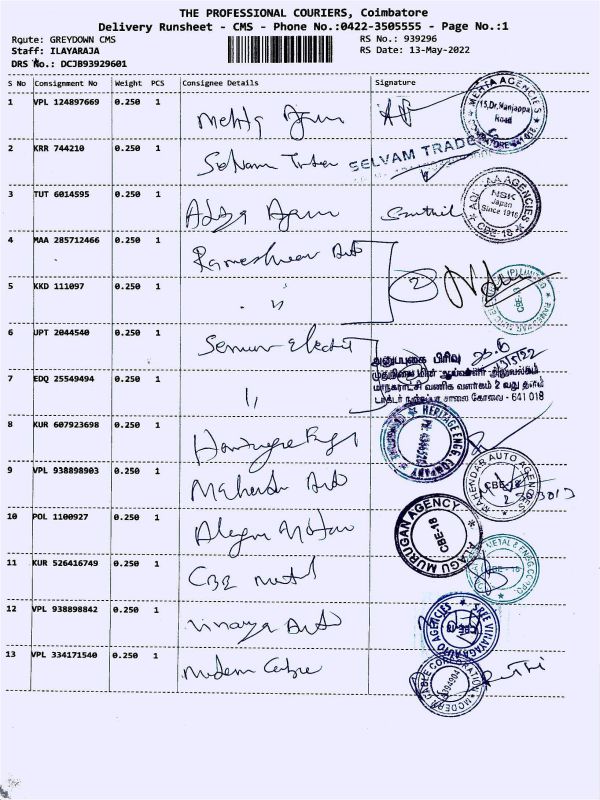 THE PROFESSIONAL COURIERS, Coimbatore
Delivery Runsheet - CMS - Phone No.:0422-3505555 - Page No.:1
Route: GREYDOWN CMS
RS No.: 939296
Staff: ILAYARAJA
RS Date: 13-May-2022
DRS No.: DCJB93929601
S No Consignment No Weight PCS Consignee Details Signature
1 VPL 124897669 0.250 1 Mehta Agen
MEHTA AGENCIES
15,Dr.Nanjappa
Road
2 KRR 744210 0.250 1 Selvam
SELVAM TRADE
3 TUT 6014595 0.250 1 Senthil
AGENCIES
NSK
Japan
Since 1916
CBE-18
4 MAA 285712466 0.250 1 Rameshwar Auto
2
5 KKD 111097 0.250 1 "
CBE-18
6 UPT 2044540 0.250 1
அனுப்புகை பிரிவு
முதன்மை மின் ஆய்வாளர் அலுவலகம்
7 EDQ 25549494 0.250 1 "
மாநகராட்சி வணிக வளாகம் 2 வது தளம்
டாக்டர் நஞ்சப்பா சாலை கோவை - 641 018
8 KUR 607923698 0.250 1
HERITAGE ENGG COMPANY
9 VPL 938898903 0.250 1 Mahendra Auto
MAHENDAR AUTO AGENCIES
CBE-18
10 POL 1100927 0.250 1
ALAGU MURUGAN AGENCY
CBE-18
11 KUR 526416749 0.250 1 CBE Metal
METAL & ENGG.CORPO
12 VPL 938898842 0.250 1 Vinayaga Auto
SREE VINAYAGA AUTO AGENCIES
CBE-18
13 VPL 334171540 0.250 1 Modern Cable
MODERN CABLE CORPORATION